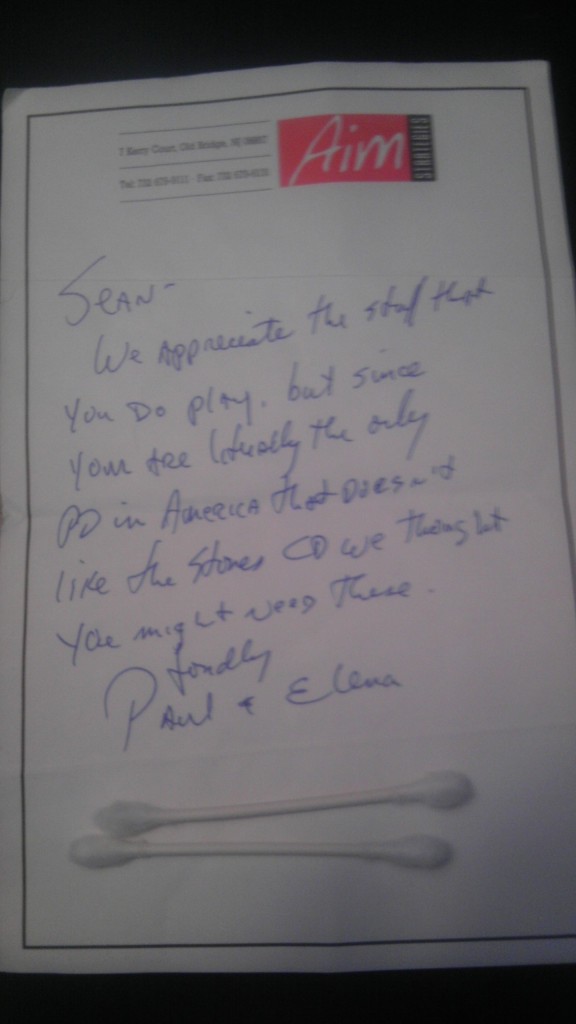 7 Kerry Court, Old Bridge, NJ
Aim STRATEGIES
Tel: 732 Fax: 732
SEAN-
We Appreciate the stuff that
You DO play. but since
Your are litually the only
PD in America that DOESN't
like the Stones CD we thought
You might need These.
fondly
PAul & Elena